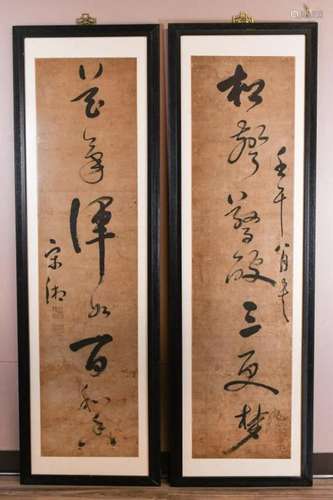 松聲驚破三更夢
壬午八月
花氣渾如百和香
宋湘